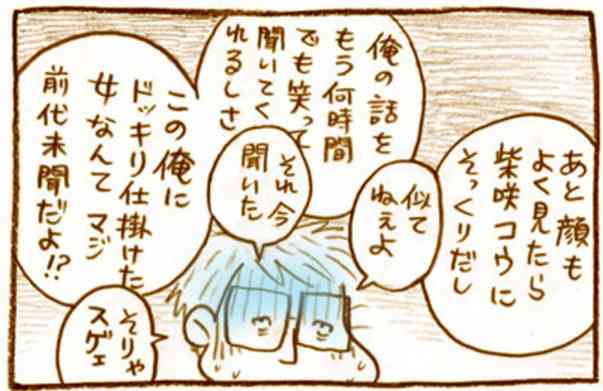 あと顔も
よく見たら
柴咲コウに
そっくりだし
似て
ねぇよ
俺の話を
もう何時間
でも笑って
聞いてく
れるしさ
それ今
聞いた
この俺に
ドッキリ仕掛けた
女なんてマジ
前代未聞だよ!?
そりゃ
スゲェ